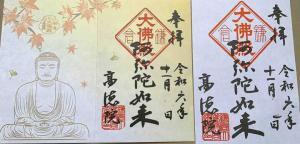 奉拝
大佛
鎌倉
阿弥陀如来
令和六年
十一月一日
高徳院
奉拝
大佛
鎌倉
阿弥陀如来
令和六年
十一月一日
高徳院